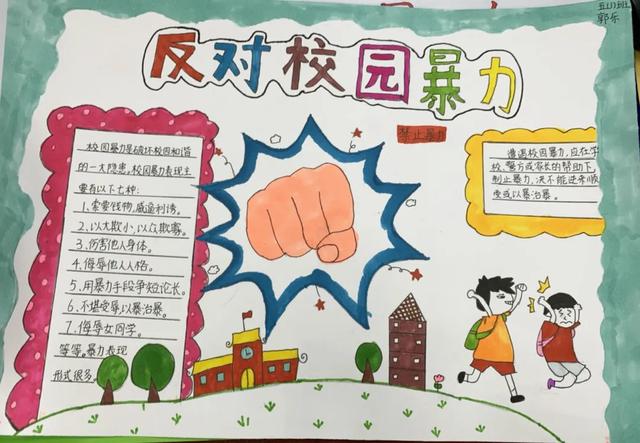 反对校园暴力
五(1)班
郭乐
禁止暴力
校园暴力是破坏校园和谐
的一大隐患。校园暴力表现主
要有以下七种:
1、索要钱物,威逼利诱。
2、以大欺小,以众欺寡。
3、伤害他人身体。
4、侮辱他人人格。
5、用暴力手段争短论长。
6、不堪受辱,以暴治暴。
7、侮辱女同学。
等等。暴力表现
形式很多。
遭遇校园暴力,应在学
校、警方或家长的帮助下
制止暴力,决不能逆来顺
受或以暴治暴。